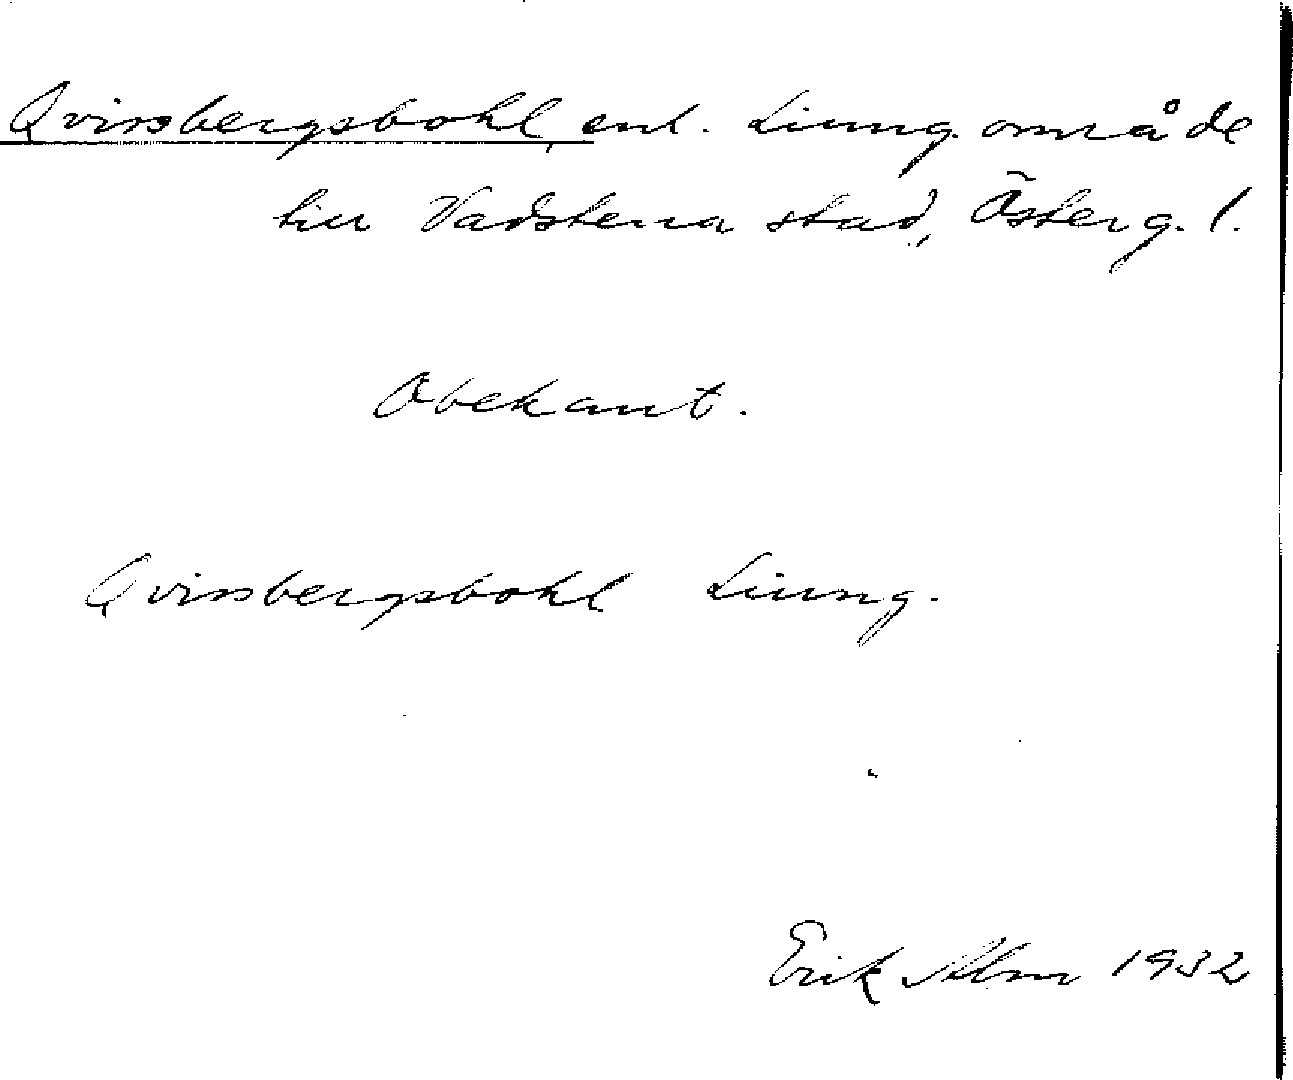 Qvissbergsbohl, enl. Liung. område
till Vadstena stad, Österg. l.
Obekant.
Qvissbergsbohl Liung.
Erik Alm 1932